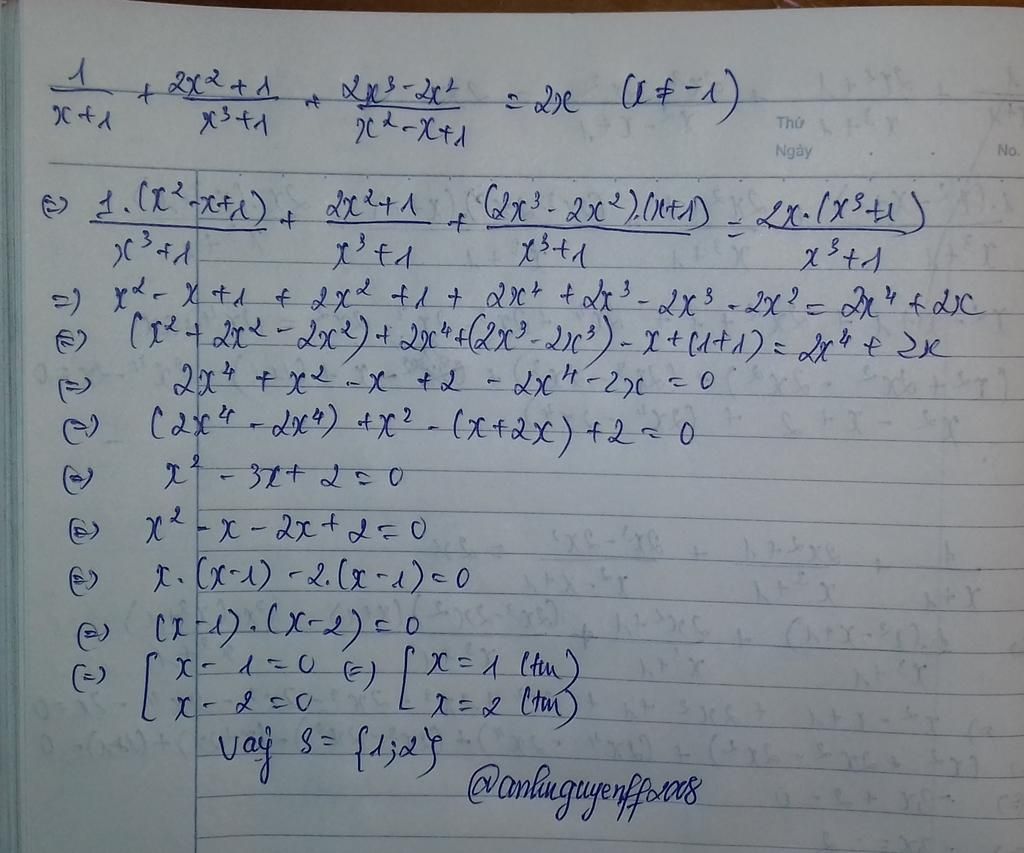 1/(x+1) + (2x² + 1)/(x³ + 1) + (2x³ - 2x²)/(x² - x + 1) = 2x (x ≠ -1)
Thứ
Ngày
No.
⇔ 1.(x² - x + 1)/(x³ + 1) + (2x² + 1)/(x³ + 1) + (2x³ - 2x²).(x + 1)/(x³ + 1) = 2x.(x³ + 1)/(x³ + 1)
⇒ x² - x + 1 + 2x² + 1 + 2x⁴ + 2x³ - 2x³ - 2x² = 2x⁴ + 2x
⇔ (x² + 2x² - 2x²) + 2x⁴ + (2x³ - 2x³) - x + (1 + 1) = 2x⁴ + 2x
⇔ 2x⁴ + x² - x + 2 - 2x⁴ - 2x = 0
⇔ (2x⁴ - 2x⁴) + x² - (x + 2x) + 2 = 0
⇔ x² - 3x + 2 = 0
⇔ x² - x - 2x + 2 = 0
⇔ x.(x - 1) - 2.(x - 1) = 0
⇔ (x - 1).(x - 2) = 0
⇔ [ x - 1 = 0 ⇔ [ x = 1 (tm)
x - 2 = 0 x = 2 (tm)
Vậy S = {1; 2}
@anhnguyenff2008